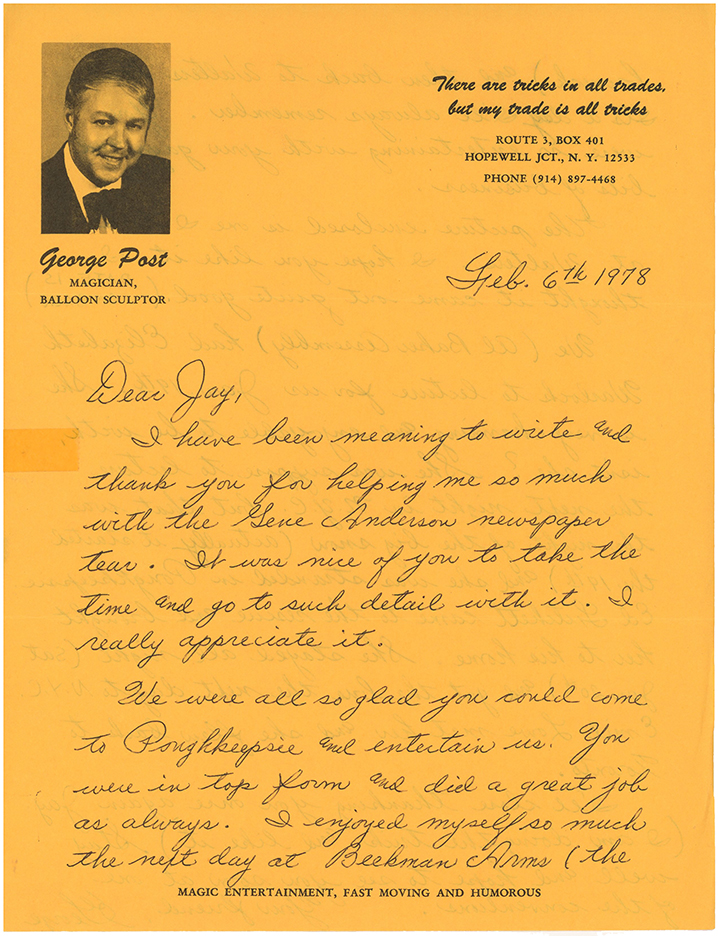 There are tricks in all trades,
but my trade is all tricks
ROUTE 3, BOX 401
HOPEWELL JCT., N. Y. 12533
PHONE (914) 897-4468
George Post
MAGICIAN,
BALLOON SCULPTOR
Feb. 6th 1978
Dear Jay,
I have been meaning to write and
thank you for helping me so much
with the Gene Anderson newspaper
tear. It was nice of you to take the
time and go to such detail with it. I
really appreciate it.
We were all so glad you could come
to Poughkeepsie and entertain us. You
were in top form and did a great job
as always. I enjoyed myself so much
the next day at Beekman Arms (the
MAGIC ENTERTAINMENT, FAST MOVING AND HUMOROUS